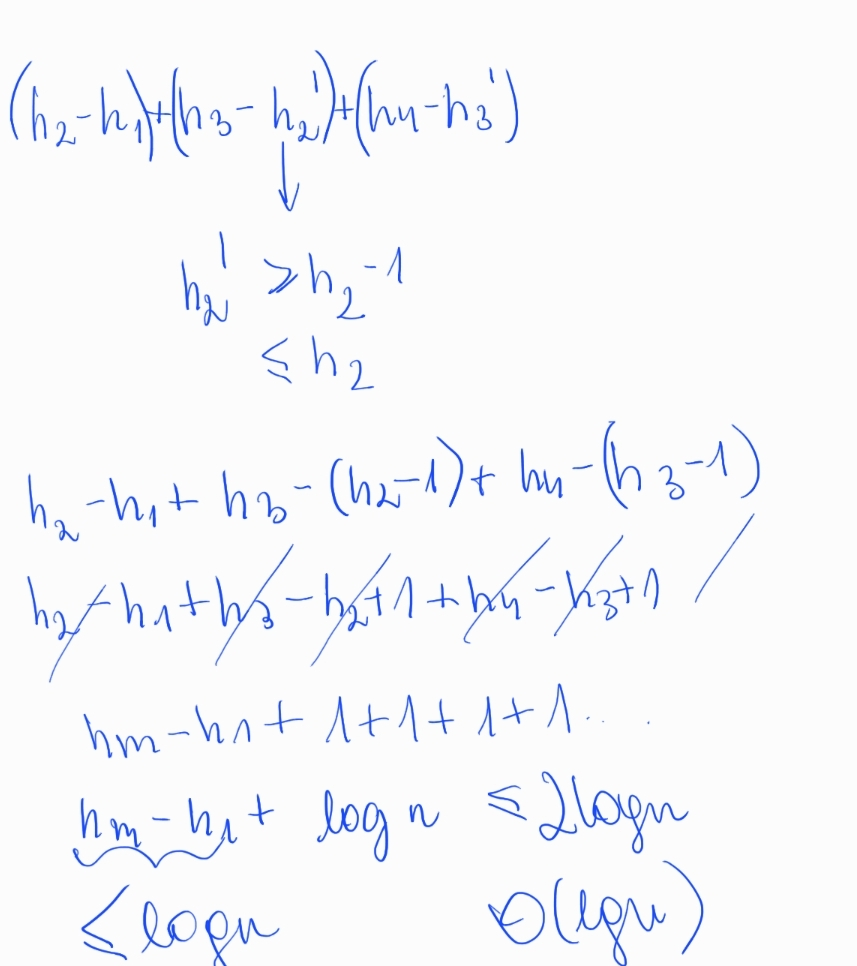 (h₂-h₁)+(h₃-h₂')+(h₄-h₃')
↓
h₂' ≥h₂-1
≤ h₂
h₂-h₁+ h₃-(h₂-1)+ h₄-(h₃-1)
h₂-h₁+h₃-h₂+1+h₄-h₃+1 /
hm-h₁+ 1+1+1+1.. .
hm-h₁+ log n ≤2logn
≤logn Θ(lgn)